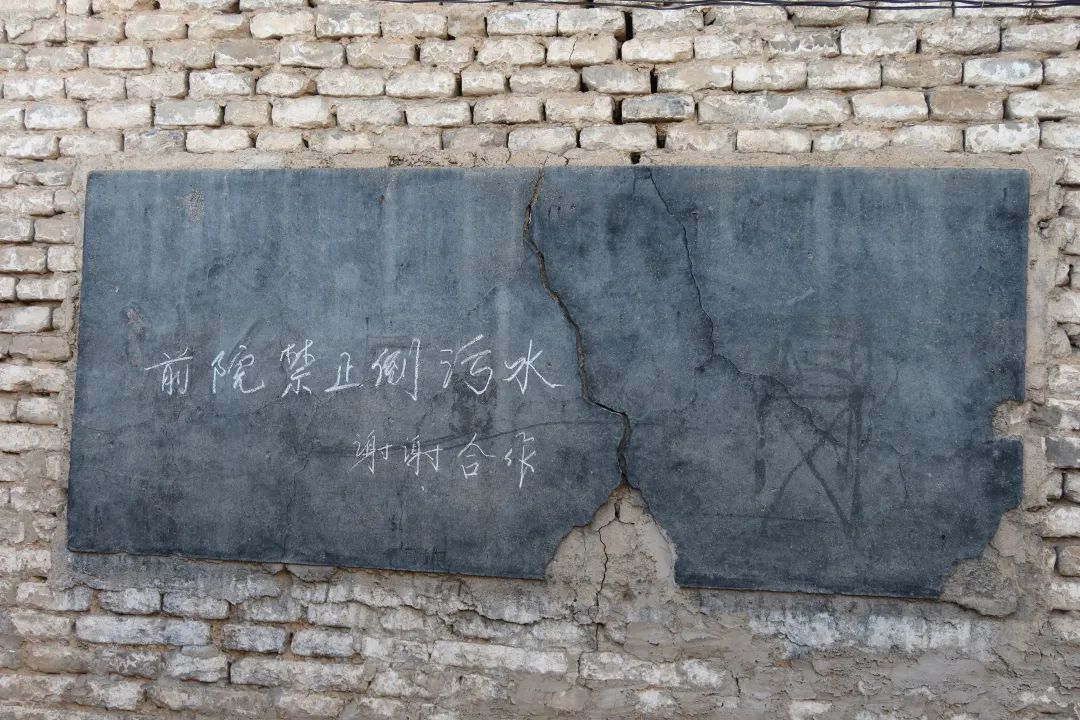 前院禁止倒污水
谢谢合作